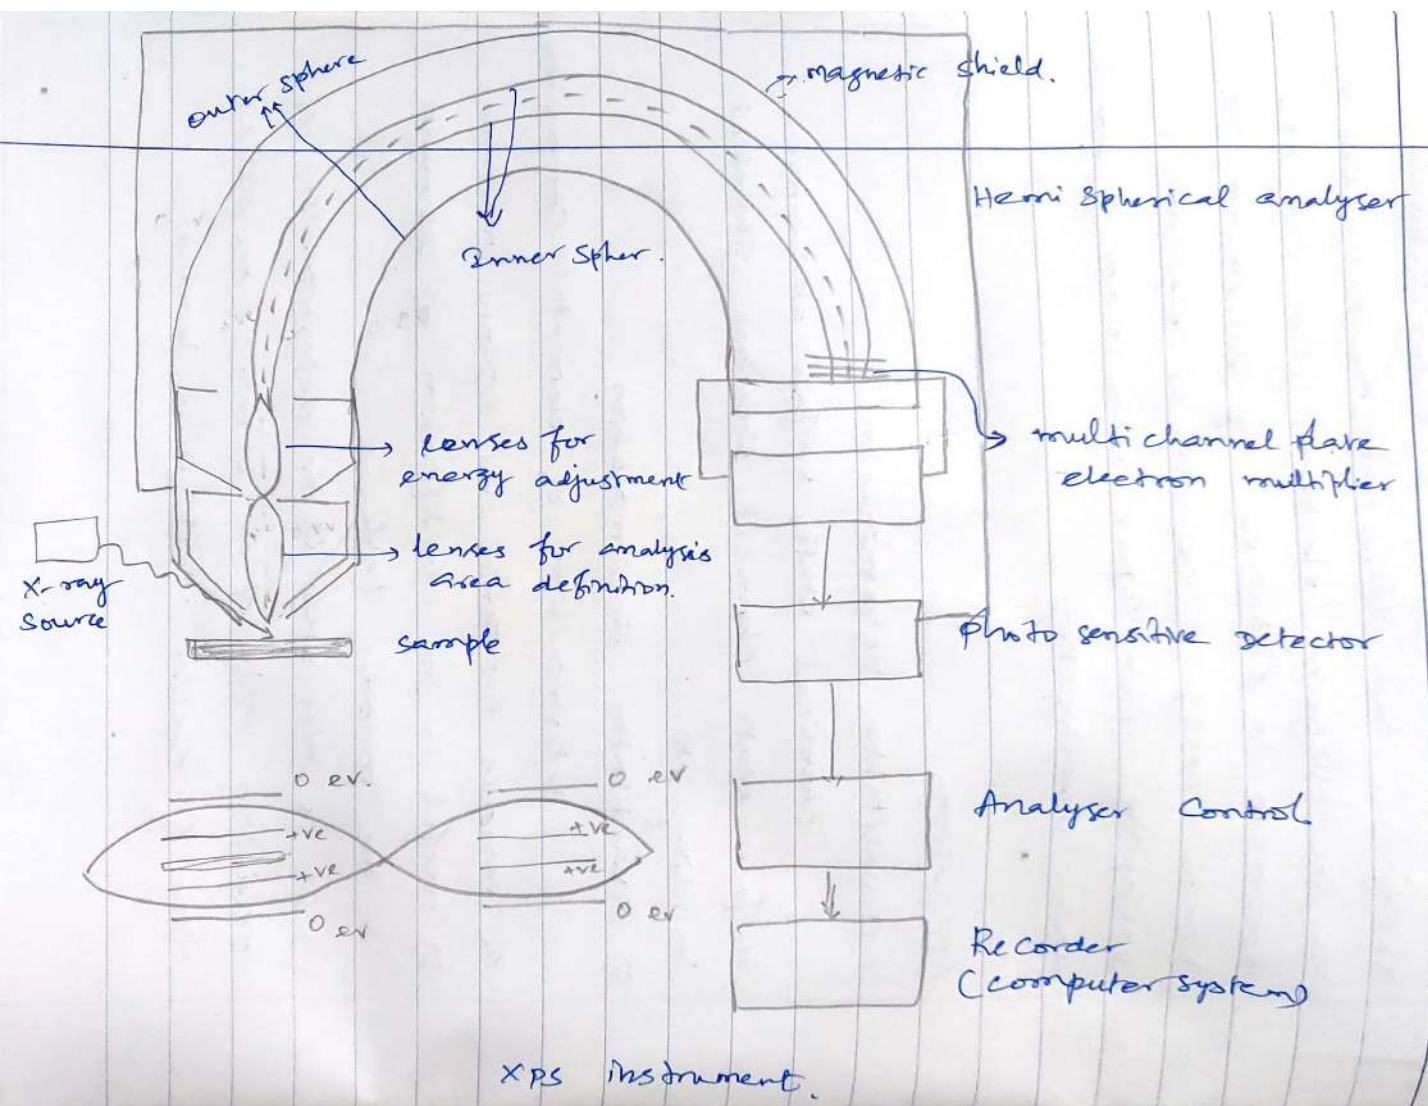 outer sphere
magnetic shield.
Hemi Spherical analyser
Inner Spher.
lenses for
energy adjustment
multi channel plate
electron multiplier
lenses for analysis
area definition.
X-ray
Source
sample
photo sensitive detector
0 ev.
0 ev
+ve
+ve
+ve
+ve
0 ev
0 ev
Analyser Control
Recorder
(computer system)
XPS instrument.